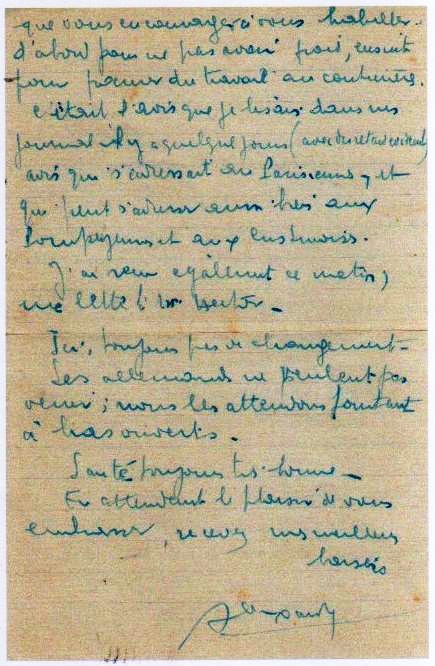 que vous encourager à vous habiller
d'abord pour ne pas avoir froid, ensuite
pour donner du travail aux couturières.
C'était l'avis que je lisais dans un
journal il y a quelques jours (avec du retard évident)
avis qui s'adressait aux Parisiennes, et
qui peut s'adresser aussi bien aux
et aux
J'ai reçu également ce matin,
une lettre de Mr
Ici, toujours pas de changement -
Les allemands ne veulent pas
venir ; nous les attendons pourtant
à bras ouverts.
Santé toujours très bonne -
En attendant le plaisir de vous
embrasser, recevez mes meilleurs
baisers